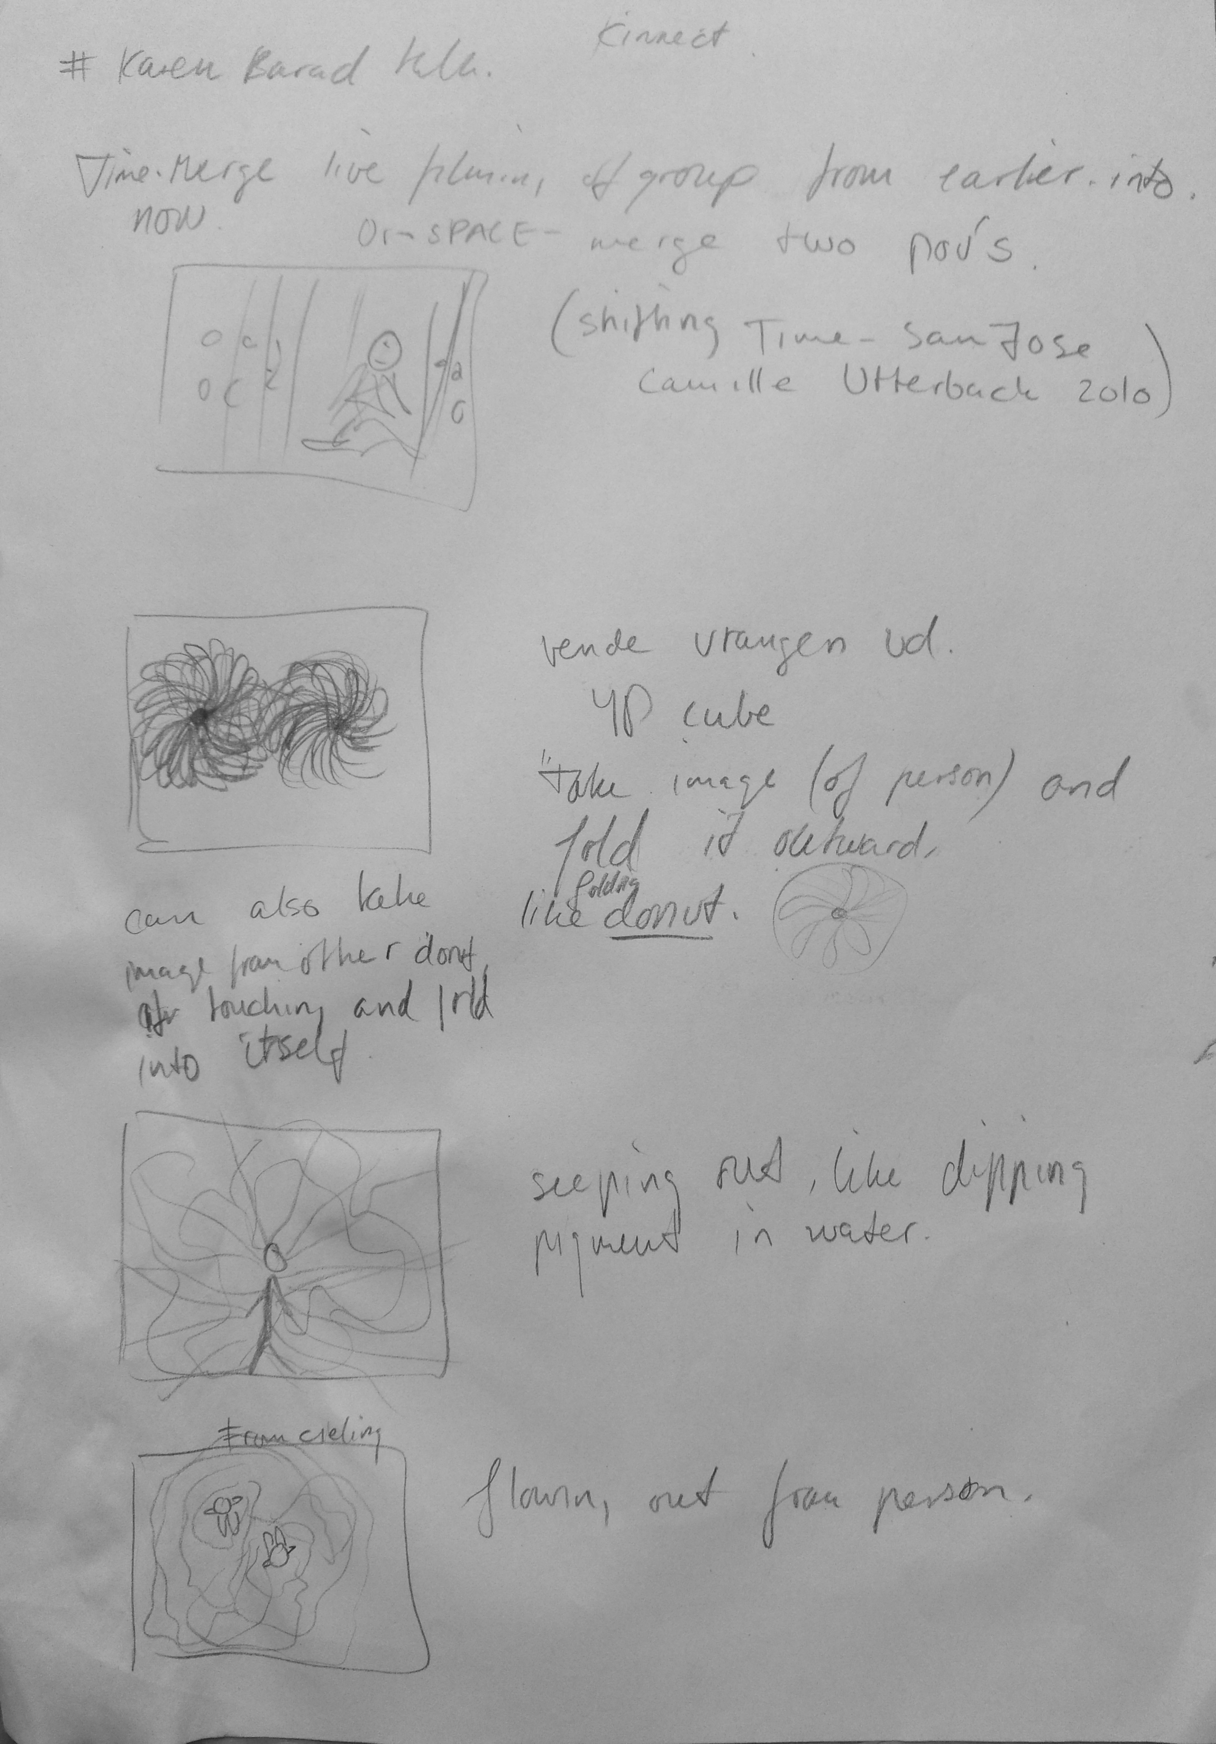 Kinnect.
# Karen Barad talk.
Time-Merge live filming of group from earlier into
now.
Or - SPACE - merge two pov's.
(Shifting Time - San Jose
Camille Utterback 2010)
vende vrangen ud.
4D cube
"take image (of person) and
fold it outward,
folding
like donut.
can also take
image from other donut,
touching and fold
into itself
seeping out, like dipping
pigment in water.
From cieling
flowing out from person.